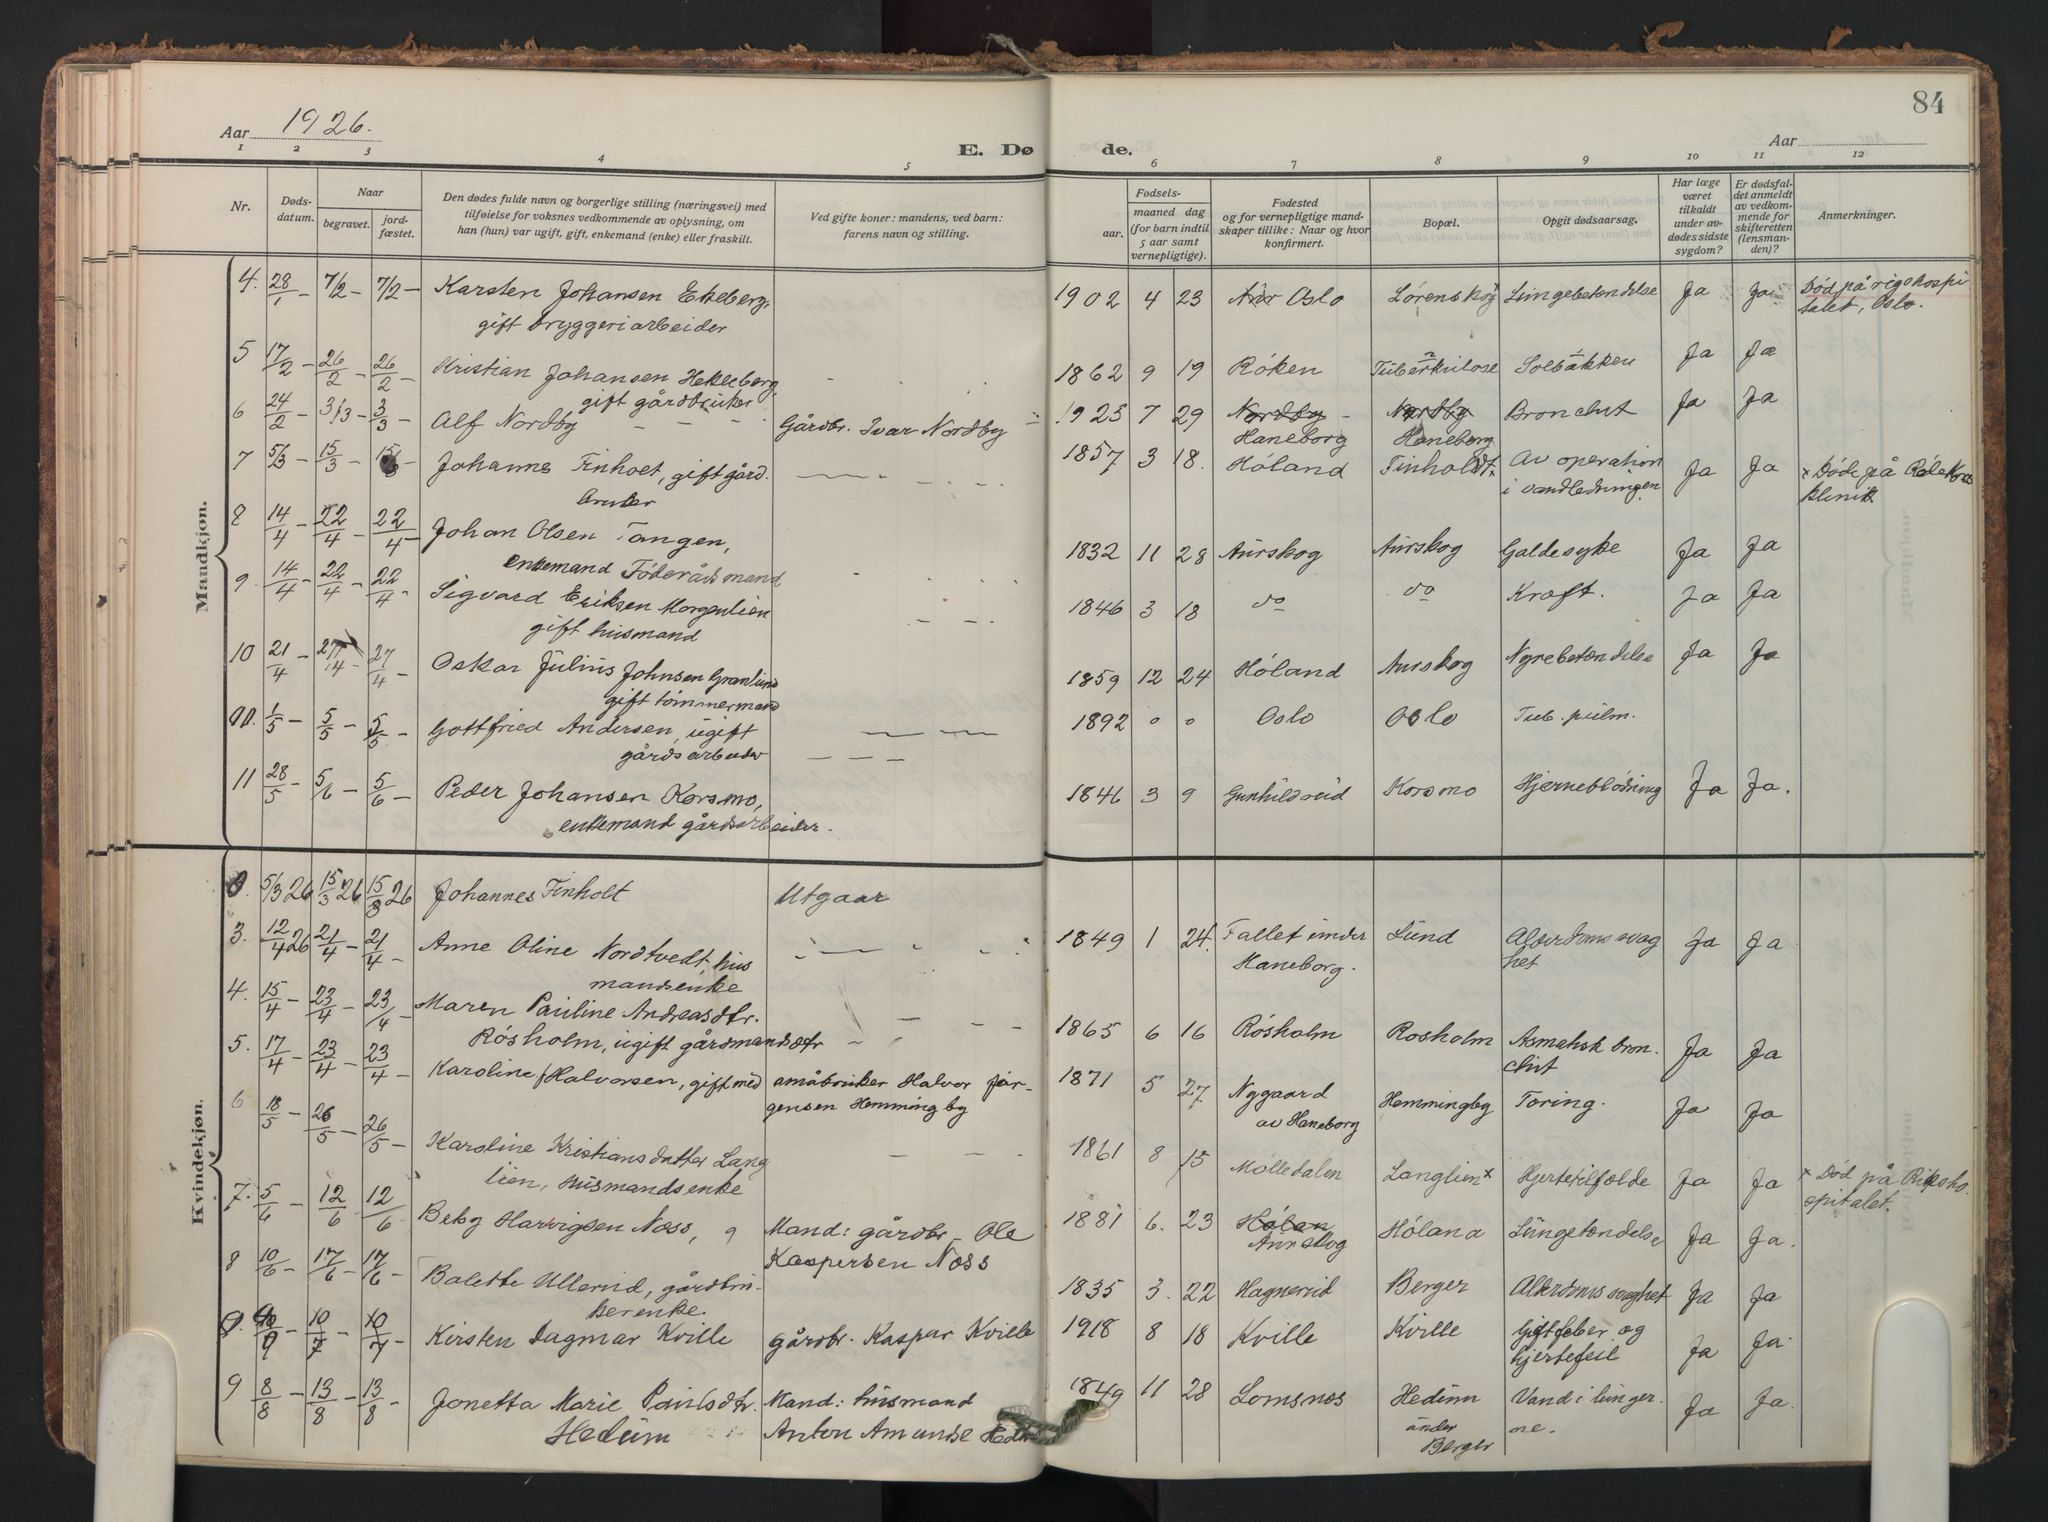 Aar 1926.
E. Dø
1 2 3 4 5
Nr.
Døds-
datum.
Naar
begravet.
jord-
fæstet.
Den dødes fulde navn og borgerlige stilling (næringsvei) med
tilføielse for voksnes vedkommende av oplysning, om
han (hun) var ugift, gift, enkemand (enke) eller fraskilt.
Ved gifte koner: mandens, ved barn:
farens navn og stilling.
Mandkjøn.
4. 28/1 — 7/2 — 7/2 — Karsten Johansen Ekeberg,
gift bryggeriarbeider
5 17/2 — 26/2 — 26/2 — Kristian Johansen Hekleberg,
gift gårdbruker
6 24/2 — 3/3 — 3/3 — Alf Nordby Gårdbr. Ivar Nordby
7 5/3 — 15/3 — 15/3 — Johannes Finholt, gift gård.
bruker
8 14/4 — 22/4 — 22/4 — Johan Olsen Tangen,
enkemand Føderåds mand
9. 14/4 — 22/4 — 22/4 — Sigvard Eriksen Morgenlien
gift husmand
10 21/4 — 27/4 — 27/4 — Oskar Julius Johnsen Granlund
gift tømmermand
1/5 — 5/5 — 5/5 — Gottfried Andersen, ugift
gårdsarbeider
11 28/5 — 5/6 — 5/6 — Peder Johansen Korsmo,
enkemand gårdsarbeider.
Kvindekjøn.
5/3 26 15/3 26 15/3 26 Johannes Finholt Utgaar
3. 12/4 26 21/4 — 21/4 — Anne Oline Nordtvedt, hus
mandsenke
4. 15/4 — 23/4 — 23/4 — Maren Pauline Andreasdtr.
Røsholm, ugift gårdmandsdtr
5. 17/4 — 23/4 — 23/4 — Karoline Halvorsen, gift med småbruker Halvor Jør-
gensen Hemmingby
6 18/5 — 26/5 — 26/5 — Karoline Kristiansdatter Lang
lien, husmandsenke
7. 5/6 — 12/6 — 12/6 Beby Harvigsen Næss, Mand: gårdbr. Ole
Kaspersen Næss
8 10/6 — 17/6 — 17/6 — Balette Ullerud, gårdbru-
kerenke.
10/7 — 10/7 — Kirsten Dagmar Kville gårdbr. Kaspar Kville
9 8/8 — 13/8 — 13/8 — Jonetta Marie Paulsdtr. Mand: husmand
Hedum Anton Amundse
84
de.
Aar
6 7 8 9 10 11 12
Fødsels-
aar.
maaned dag
(for barn indtil
5 aar samt
vernepligtige).
Fødested
og for vernepligtige mand-
skaper tillike: Naar og hvor
konfirmert.
Bopæl.
Opgit dødsaarsag.
Har læge
været
tilkaldt
under av-
dødes sidste
sygdom?
Er dødsfal-
det anmeldt
av vedkom-
mende for
skifteretten
(lensman-
den)?
Anmerkninger.
1902 4 23 Oslo Lørenskog Lungebetændelse Ja Ja Død på rigshospi
talet, Oslo.
1862 9 19 Røken Tuberkulose Solbakken Ja Ja
1923 7 29 Nordby Nordby Bronchit Ja Ja
Haneborg Haneborg
1857 3 18. Høland Finholdt x Av operation Ja Ja x Døde på Røde Kors
i vandledningen klinik
1832 11 28 Aurskog Aurskog Galdesyke Ja Ja
1846 3 18 do do Kræft. Ja Ja
1859 12 24 Høland Aurskog Nyrebetændelse Ja Ja
1892 o o Oslo Oslo Tub. pulm.
1846 3 9 Gunhildrud Korsmo Hjerneblødning Ja Ja.
1849 1 24. Fallet under Lund Alderdomssvag Ja Ja
Haneborg. het
1865 6 16 Røsholm Rosholm Asmatisk bron. Ja Ja
chit
1871 5 27 Nygaard Hemmingby Tæring. Ja Ja
av Haneborg
1861 8 15 Mølledalen Langlien x Hjertetilfælde Ja Ja x Død på Riksho
spitalet.
1881 6. 23 Hølan Høland Lungetændelse Ja Ja.
Aurskog
1835 3. 22 Hagnerud Berger Alderdomssvaghet Ja Ja
1918 8 18 Kville Kville Giftfeber og Ja Ja.
hjertefeil
1849 11 28 Lomsnæs Hedum Vand i lunger Ja Ja.
under ne.
Berger